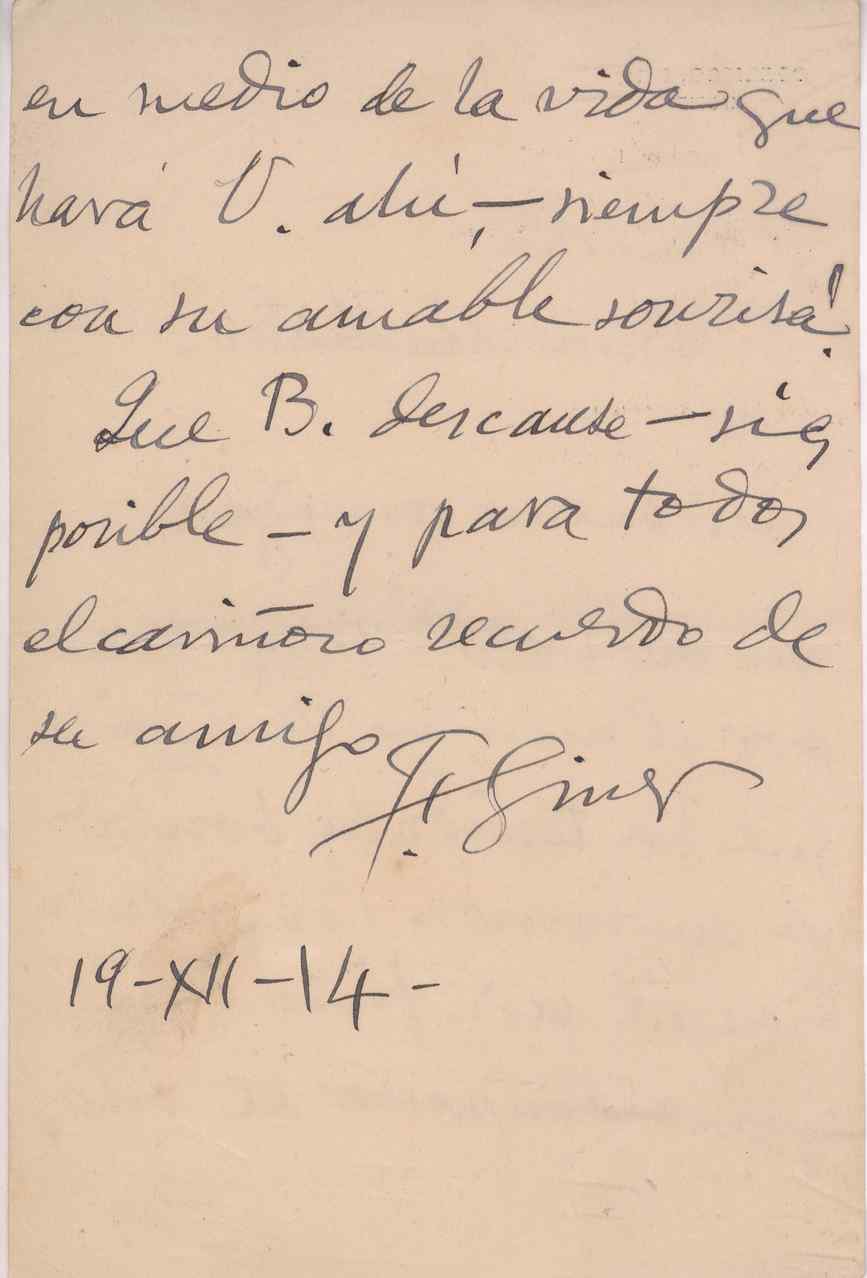 en medio de la vida que
hará V. ahí,—siempre
con su amable sonrisa!
Que B. descanse—si es
posible—y para todos
el cariñoso recuerdo de
su amigo F. Giner
19-XII-14-